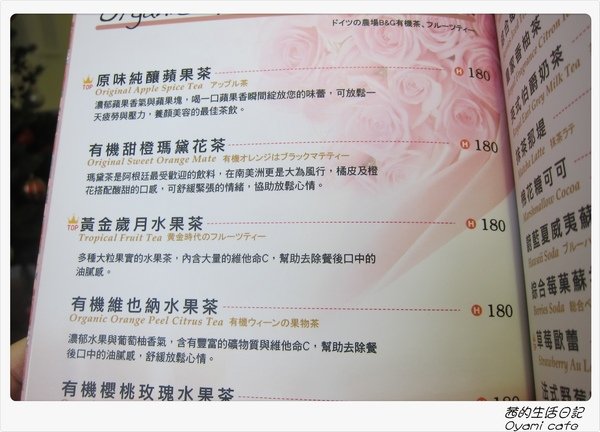 Organic
ドイツの農場B&G有機茶、フルーツティー
TOP 原味純釀蘋果茶 H 180
Original Apple Spice Tea アップル茶
濃郁蘋果香氣與蘋果塊，喝一口蘋果香瞬間綻放您的味蕾，可放鬆一
天疲勞與壓力，養顏美容的最佳茶飲。
有機甜橙瑪黛花茶 H 180
Original Sweet Orange Mate 有機オレンジはブラックマテティー
瑪黛茶是阿根廷最受歡迎的飲料，在南美洲更是大為風行，橘皮及橙
花搭配酸甜的口感，可舒緩緊張的情緒，協助放鬆心情。
TOP 黃金歲月水果茶 H 180
Tropical Fruit Tea 黄金時代のフルーツティー
多種大粒果實的水果茶，內含大量的維他命C，幫助去除餐後口中的
油膩感。
有機維也納水果茶 H 180
Organic Orange Peel Citrus Tea 有機ウィーンの果物茶
濃郁水果與葡萄柚香氣，含有豐富的礦物質與維他命C，幫助去除餐
後口中的油膩感，舒緩放鬆心情。
有機櫻桃玫瑰水果茶 180
柚茶
Citron Tea
英式伯爵奶茶
Earl Grey Milk Tea
抹茶那堤
Matcha Latte 抹茶ラテ
棉花糖可可
Marshmallow Cocoa
蔚藍夏威夷蘇
Hawaii Soda ブルーハ
綜合莓菓蘇
Berries Soda 総合ベ
草莓歐蕾
Strawberry Au L
法式野莓
茜的生活日記
Oyami cafe